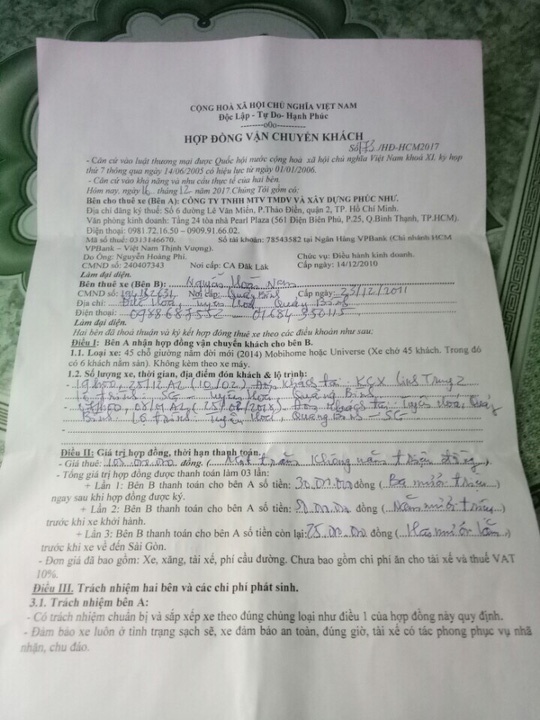 CỘNG HOÀ XÃ HỘI CHỦ NGHĨA VIỆT NAM
Độc Lập - Tự Do- Hạnh Phúc
--------o0o---------
HỢP ĐỒNG VẬN CHUYỂN KHÁCH
/HĐ-HCM2017
- Căn cứ vào luật thương mại được Quốc hội nước cộng hoà xã hội chủ nghĩa Việt Nam khoá XI, kỳ họp
thứ 7 thông qua ngày 14/06/2005 có hiệu lực từ ngày 01/01/2006.
- Căn cứ vào khả năng và nhu cầu thực tế của hai bên.
Hôm nay, ngày tháng 12 năm 2017.Chúng Tôi gồm có:
Bên cho thuê xe (Bên A): CÔNG TY TNHH MTV TMDV VÀ XÂY DỰNG PHÚC NHƯ.
Địa chỉ đăng ký thuế: Số 6 đường Lê Văn Miến, P.Thảo Điền, quận 2, TP. Hồ Chí Minh.
Văn phòng kinh doanh: Tầng 24 tòa nhà Pearl Plaza (561 Điện Biên Phủ, P.25, Q.Bình Thạnh, TP.HCM).
Điện thoại: 0981.72.16.50 – 0909.91.66.02.
Mã số thuế: 0313146670. Số tài khoản: 78543582 tại Ngân Hàng VPBank (Chi nhánh HCM
VPBank – Việt Nam Thịnh Vượng).
Do Ông: Nguyễn Hoàng Phi. Chức vụ: Điều hành kinh doanh.
CMND số: 240407343 Nơi cấp: CA Đăk Lăk Cấp ngày: 14/12/2010
Làm đại diện.
Bên thuê xe (Bên B): Nguyễn Hoài Nam
CMND số: Nơi cấp: Quảng Bình Cấp ngày: 23/12/2011
Địa chỉ: Đức Hoá, Tuyên Hoá, Quảng Bình
Điện thoại: 0988687552 – 01684 950115
Làm đại diện.
Hai bên đã thoả thuận và ký kết hợp đồng thuê xe theo các điều khoản như sau:
Điều I: Bên A nhận hợp đồng vận chuyển khách cho bên B.
1.1. Loại xe: 45 chỗ giường nằm đời mới (2014) Mobihome hoặc Universe (Xe chở 45 khách. Trong đó
có 6 khách nằm sàn). Không kèm theo xe máy.
1.2. Số lượng xe, thời gian, địa điểm đón khách & lộ trình:
- 19h00, 25/12.AL (10/02) Đón khách tại: KCX Linh Trung 2
Lộ trình: SG – Tuyên Hoá, Quảng Bình
- 17h00, AL, (2018) Đón khách tại: Tuyên Hoá, Quảng
Bình. Lộ trình: Tuyên Hoá, Quảng Bình – SG
Điều II: Giá trị hợp đồng, thời hạn thanh toán:
- Giá thuê: 105.000.000 đồng. (Một trăm không năm triệu đồng)
- Tổng giá trị hợp đồng được thanh toán làm 03 lần:
+ Lần 1: Bên B thanh toán cho bên A số tiền: 30.000.000 đồng (Ba mươi triệu)
ngay sau khi hợp đồng được ký.
+ Lần 2: Bên B thanh toán cho bên A số tiền: 50.000.000 đồng (Năm mươi triệu)
trước khi xe khởi hành.
+ Lần 3: Bên B thanh toán cho bên A số tiền còn lại: 25.000.000 đồng (Hai mươi lăm)
trước khi xe về đến Sài Gòn.
- Đơn giá đã bao gồm: Xe, xăng, tài xế, phí cầu đường. Chưa bao gồm chi phí ăn cho tài xế và thuế VAT
10%.
Điều III. Trách nhiệm hai bên và các chi phí phát sinh.
3.1. Trách nhiệm bên A:
- Có trách nhiệm chuẩn bị và sắp xếp xe theo đúng chủng loại như điều 1 của hợp đồng này quy định.
- Đảm bảo xe luôn ở tình trạng sạch sẽ, xe đảm bảo an toàn, đúng giờ, tài xế có tác phong phục vụ nhã
nhặn, chu đáo.